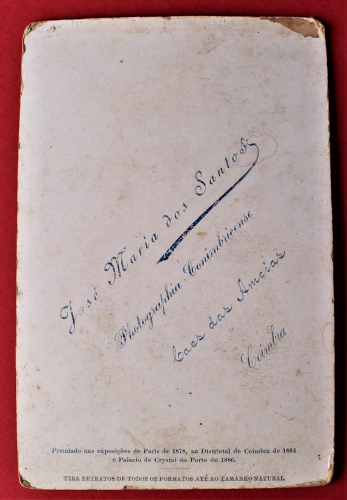 José Maria dos Santos
Photographia Conimbricense
Caes das Ameias
Coimbra
Premiado nas exposições de Paris de 1878, na Districtal de Coimbra de 1884
e Palacio de Crystal do Porto de 1886.
TIRA RETRATOS DE TODOS OS FORMATOS ATÉ AO TAMANHO NATURAL